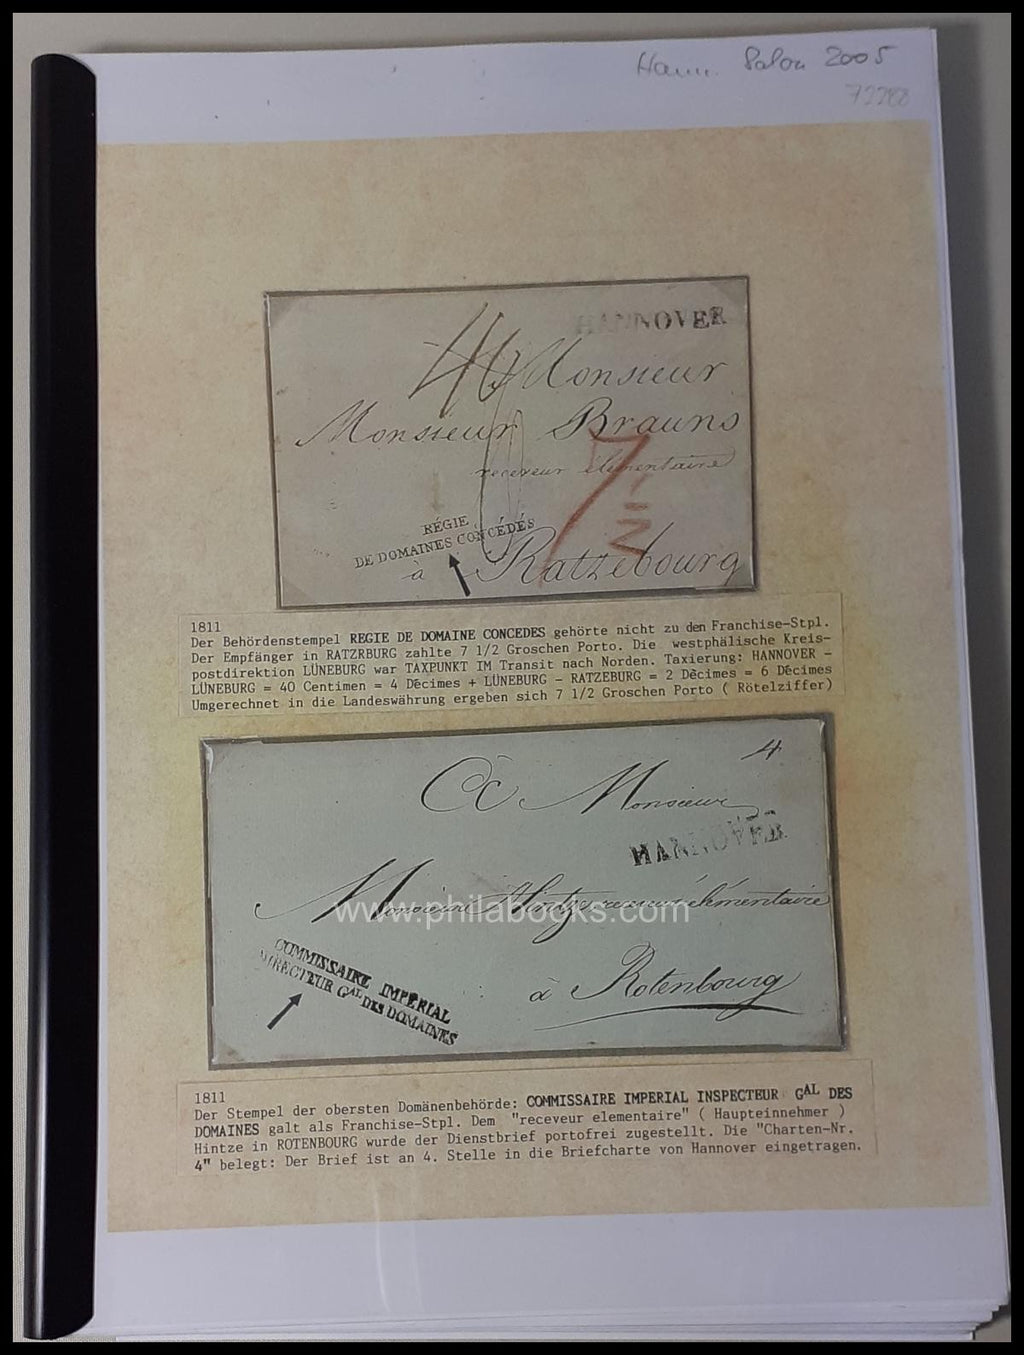 Hann. Salon 2005
72288
HANNOVER
40 Monsieur
Monsieur Brauns
receveur élémentaire
7 1/2
RÉGIE
DE DOMAINES CONCÉDÉS
à Ratzebourg
1811
Der Behördenstempel REGIE DE DOMAINE CONCEDES gehörte nicht zu den Franchise-Stpl.
Der Empfänger in RATZRBURG zahlte 7 1/2 Groschen Porto. Die westphälische Kreis-
postdirektion LÜNEBURG war TAXPUNKT IM Transit nach Norden. Taxierung: HANNOVER -
LÜNEBURG = 40 Centimen = 4 Décimes + LÜNEBURG - RATZEBURG = 2 Décimes = 6 Décimes
Umgerechnet in die Landeswährung ergeben sich 7 1/2 Groschen Porto ( Rötelziffer)
4
Monsieur
HANNOVER
Monsieur Hintze receveur élémentaire
www.philabooks.com
COMMISSAIRE IMPÉRIAL
DIRECTEUR GAL DES DOMAINES
à Rotenbourg
1811
Der Stempel der obersten Domänenbehörde: COMMISSAIRE IMPERIAL INSPECTEUR GAL DES
DOMAINES galt als Franchise-Stpl. Dem "receveur elementaire" ( Haupteinnehmer )
Hintze in ROTENBOURG wurde der Dienstbrief portofrei zugestellt. Die "Charten-Nr.
4" belegt: Der Brief ist an 4. Stelle in die Briefcharte von Hannover eingetragen.